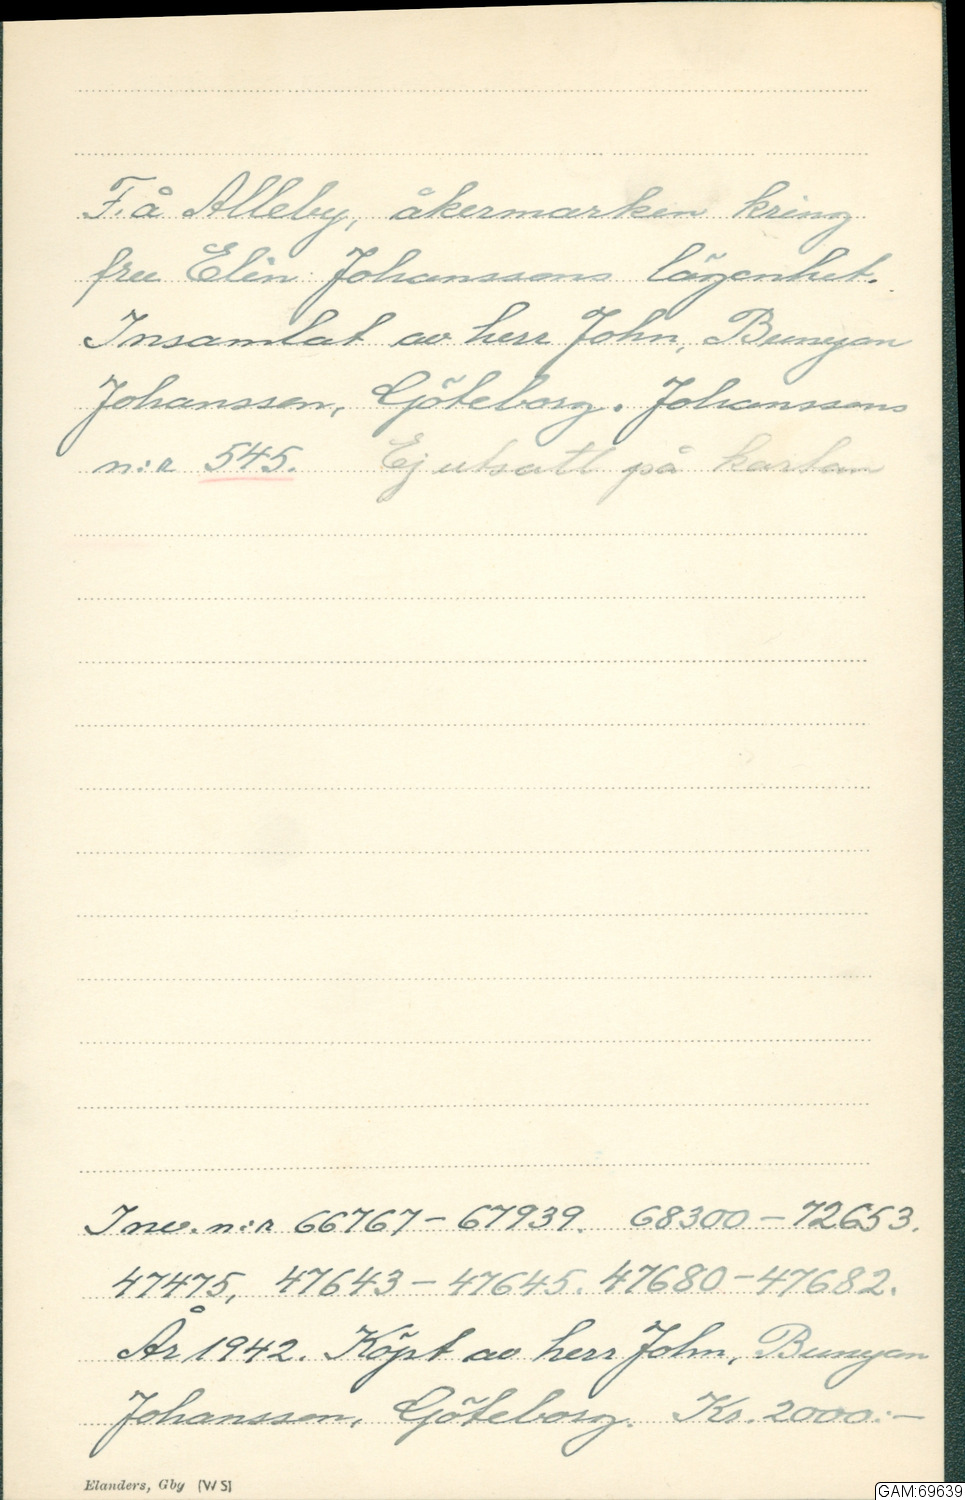 F. å Alleby, åkermarken kring
fru Elin Johanssons lägenhet.
Insamlat av herr John, Bunyan
Johansson, Göteborg. Johanssons
n:r 545. Ej utsatt på kartan
Inv. n:r 66767-67939. 68300-72653.
47475, 47643-47645. 47680-47682.
År 1942. Köpt av herr John, Bunyan
Johansson, Göteborg. Kr. 2000:-
Elanders, Gby (WS)
GAM:69639